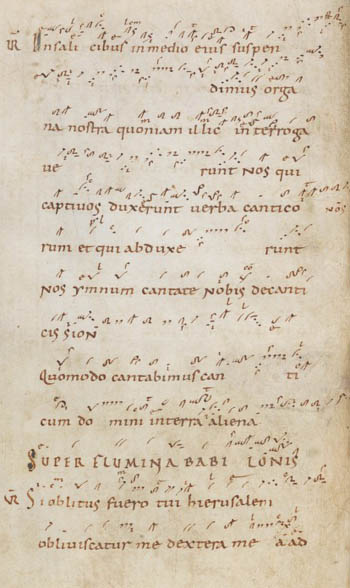 VR In salicibus in medio eius suspen
dimus orga
na nostra quoniam illic interroga
ve runt nos qui
captivos duxerunt verba cantico nos
rum et qui abduxe runt
nos ymnum cantate nobis de canti
cis sion
Quomodo cantabimus can ti
cum do mini in terra aliena
SUPER FLUMINA BABI LONIS
VR Si oblitus fuero tui hierusalem
obliviscatur me dextera me a ad